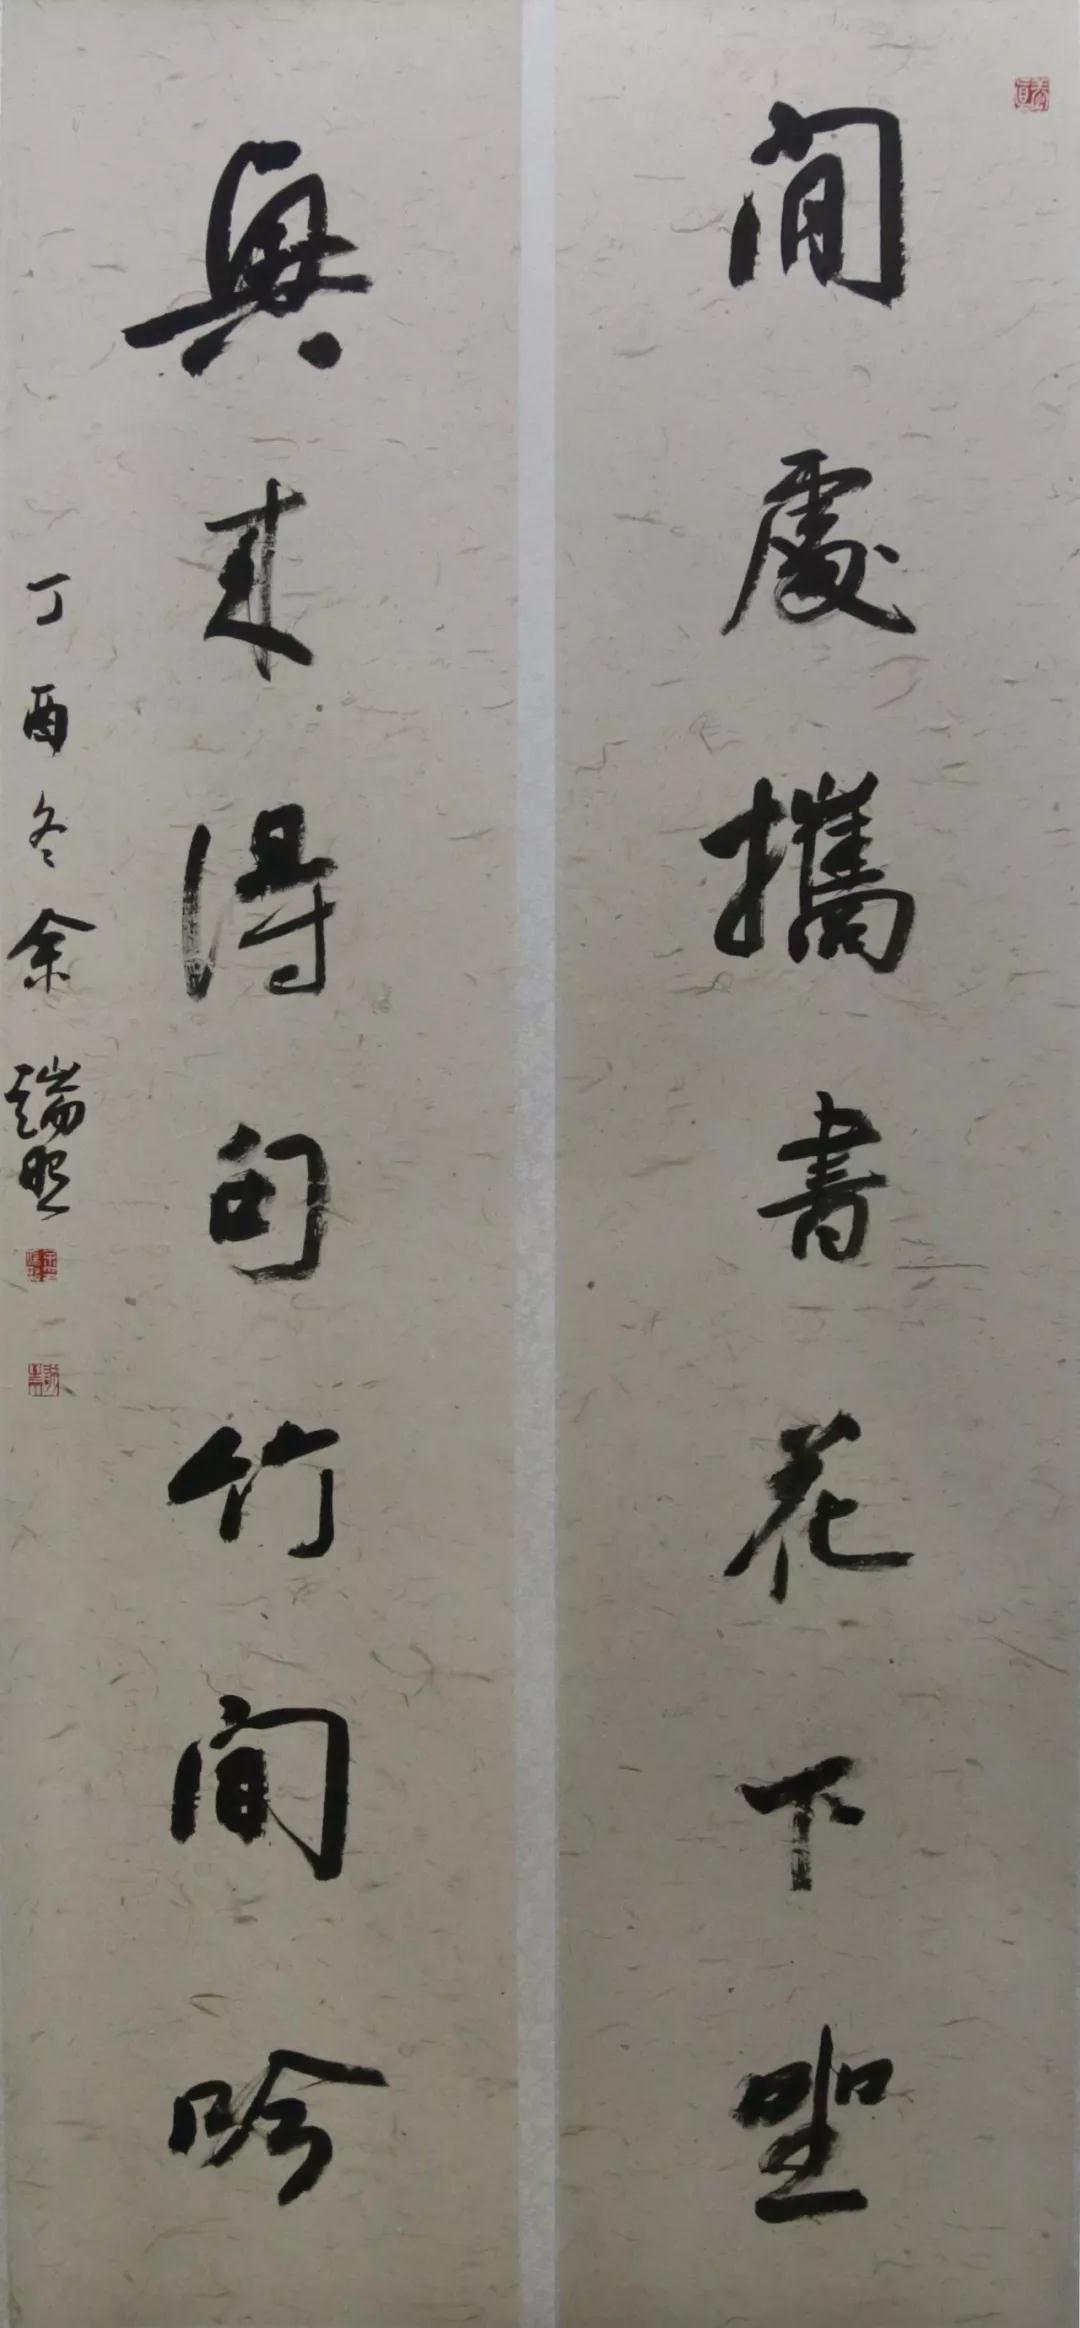 閒處攜書花下坐
興來得句竹間吟
丁酉冬余瑞照